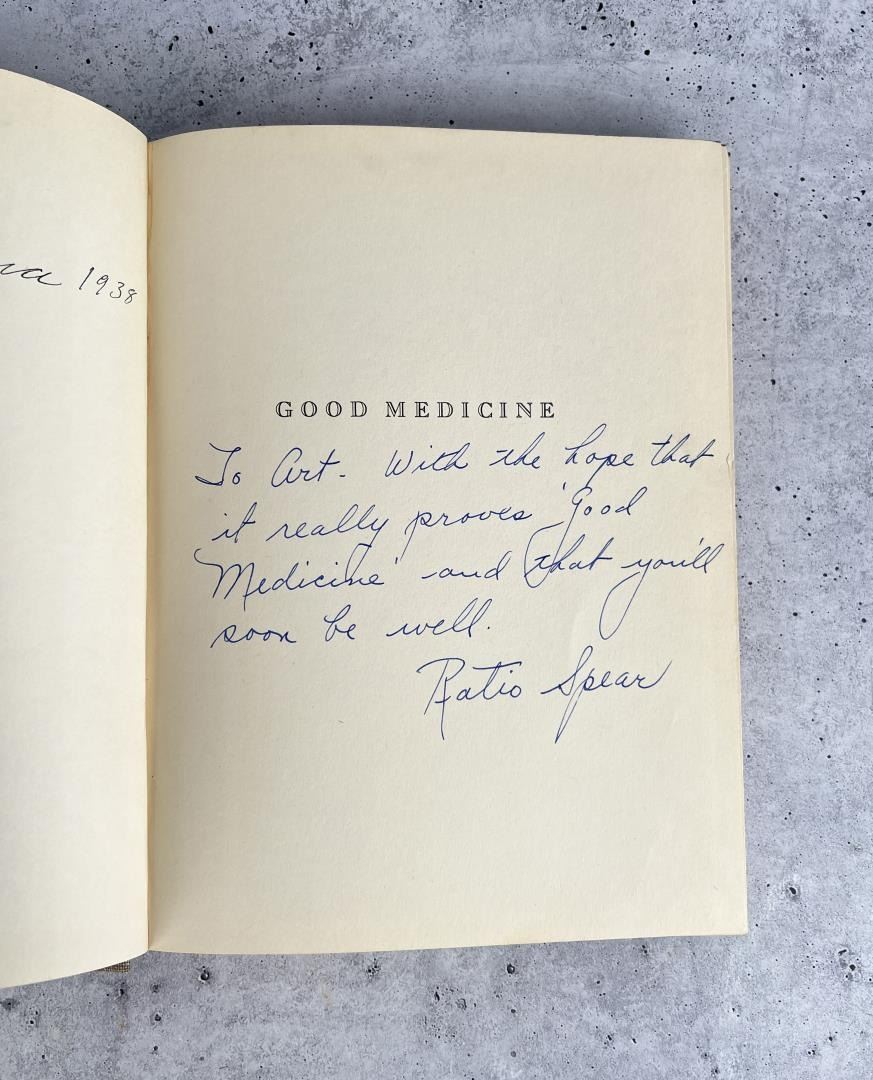 1938
GOOD MEDICINE
To Art. With the hope that
it really proves 'Good
Medicine' and that you'll
soon be well.
Ratio Spear